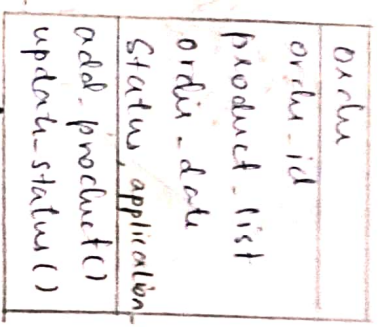 order
order_id
product_list
order_date
status, application
add_product()
update_status()